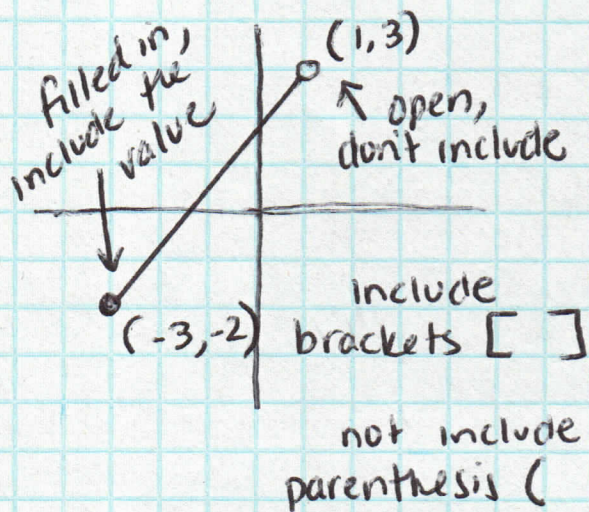 filled in,
include the
value
(1,3)
open,
don't include
(-3,-2)
include
brackets [ ]
not include
parenthesis (